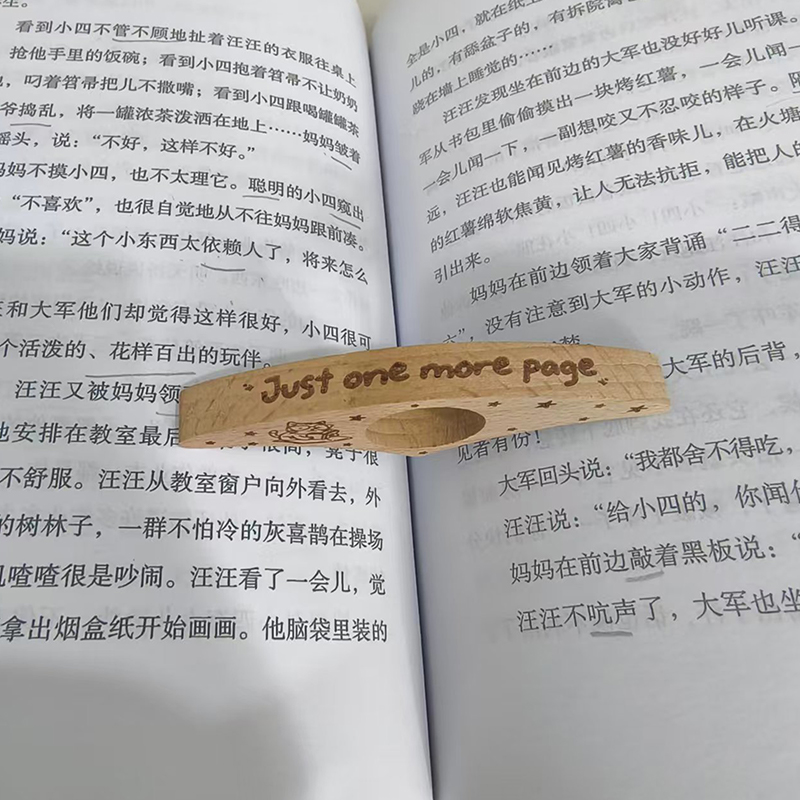 看到小四不管不顾地扯着汪汪的衣服往桌上
抢他手里的饭碗；看到小四抱着笤帚不让奶奶
，叼着笤帚把儿不撒嘴；看到小四跟喝罐罐茶
爷捣乱，将一罐浓茶泼洒在地上……妈妈皱着
摇头，说：“不好，这样不好。”
妈妈不摸小四，也不太理它。聪明的小四窥出
“不喜欢”，也很自觉地从不往妈妈跟前凑。
妈说：“这个小东西太依赖人了，将来怎么
和大军他们却觉得这样很好，小四很可
个活泼的、花样百出的玩伴。
汪汪又被妈妈领
地安排在教室最后
很高，凳子很
不舒服。汪汪从教室窗户向外看去，外
的树林子，一群不怕冷的灰喜鹊在操场
叽喳喳很是吵闹。汪汪看了一会儿，觉
拿出烟盒纸开始画画。他脑袋里装的
全是小四，就在纸上
儿的，有舔盆子的，有拆院篱
晓在墙上睡觉的……
汪汪发现坐在前边的大军也没好好儿听课。
军从书包里偷偷摸出一块烤红薯，一会儿闻一
一会儿闻一下，一副想咬又不忍咬的样子。
远，汪汪也能闻见烤红薯的香味儿，在火塘
的红薯绵软焦黄，让人无法抗拒，能把人的
引出来。
妈妈在前边领着大家背诵“二二得
”，没有注意到大军的小动作，汪汪
大军的后背，
见者有份！
大军回头说：“我都舍不得吃，
汪汪说：“给小四的，你闻
妈妈在前边敲着黑板说：“
汪汪不吭声了，大军也坐
Just one more page